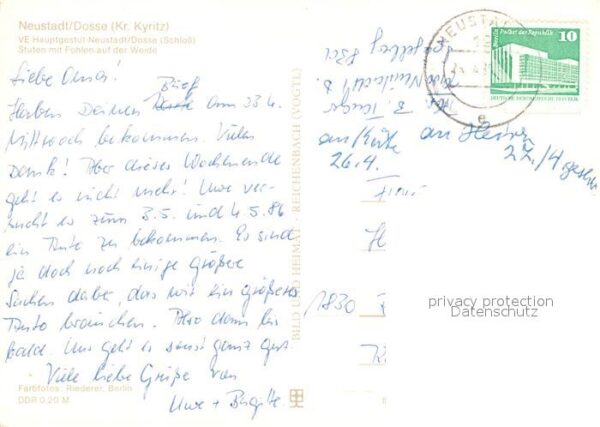 Neustadt/Dosse (Kr. Kyritz)
VE Hauptgestüt Neustadt/Dosse (Schloß)
Stuten mit Fohlen auf der Weide
Liebe Oma!
Brief
Haben Deinen am 23.4.
Mittwoch bekommen. Vielen
Dank! Aber dieses Wochenende
geht es nicht mehr! Uwe ver-
sucht es zum 3.5. und 4.5.86
ein Auto zu bekommen. Es sind
ja doch noch einige größere
Sachen dabei, das wir ein größeres
Auto brauchen. Also dann bis
bald. Uns geht es sonst ganz gut.
Viele liebe Grüße von
Uwe + Birgitt.
Farbfotos: Riederer, Berlin
DDR 0,20 M
BILD UND HEIMAT REICHENBACH (VOGTL)
NEUSTADT
Berlin Palast der Republik
10
DEUTSCHE DEMOKRATISCHE REPUBLIK
an
26.4.
an
27/4
1830
privacy protection
Datenschutz